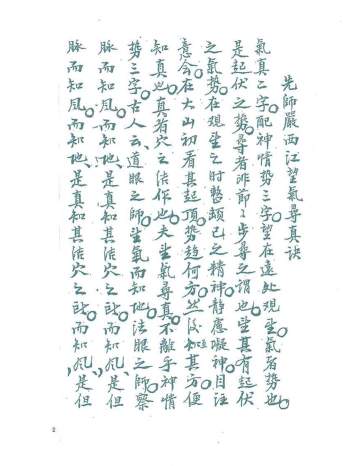 先師嚴西江望氣尋真訣
氣真二字配神情勢三字望在遠处观望氣者勢也
是起伏之勢尋者非節節步尋之謂也望其有起伏
之氣勢在观望之时整顿已之精神静應凝神目注
意会在大山初看其起顶勢趋何方然後知其方便
知真也真者穴之结作也夫望氣尋真不離乎神情
勢三字古人云道眼之師望氣而知地法眼之師察
脉而知風而知地是真知其结穴之所而知風是但
脉而知風而知地是真知其结穴之所而知風是但
2